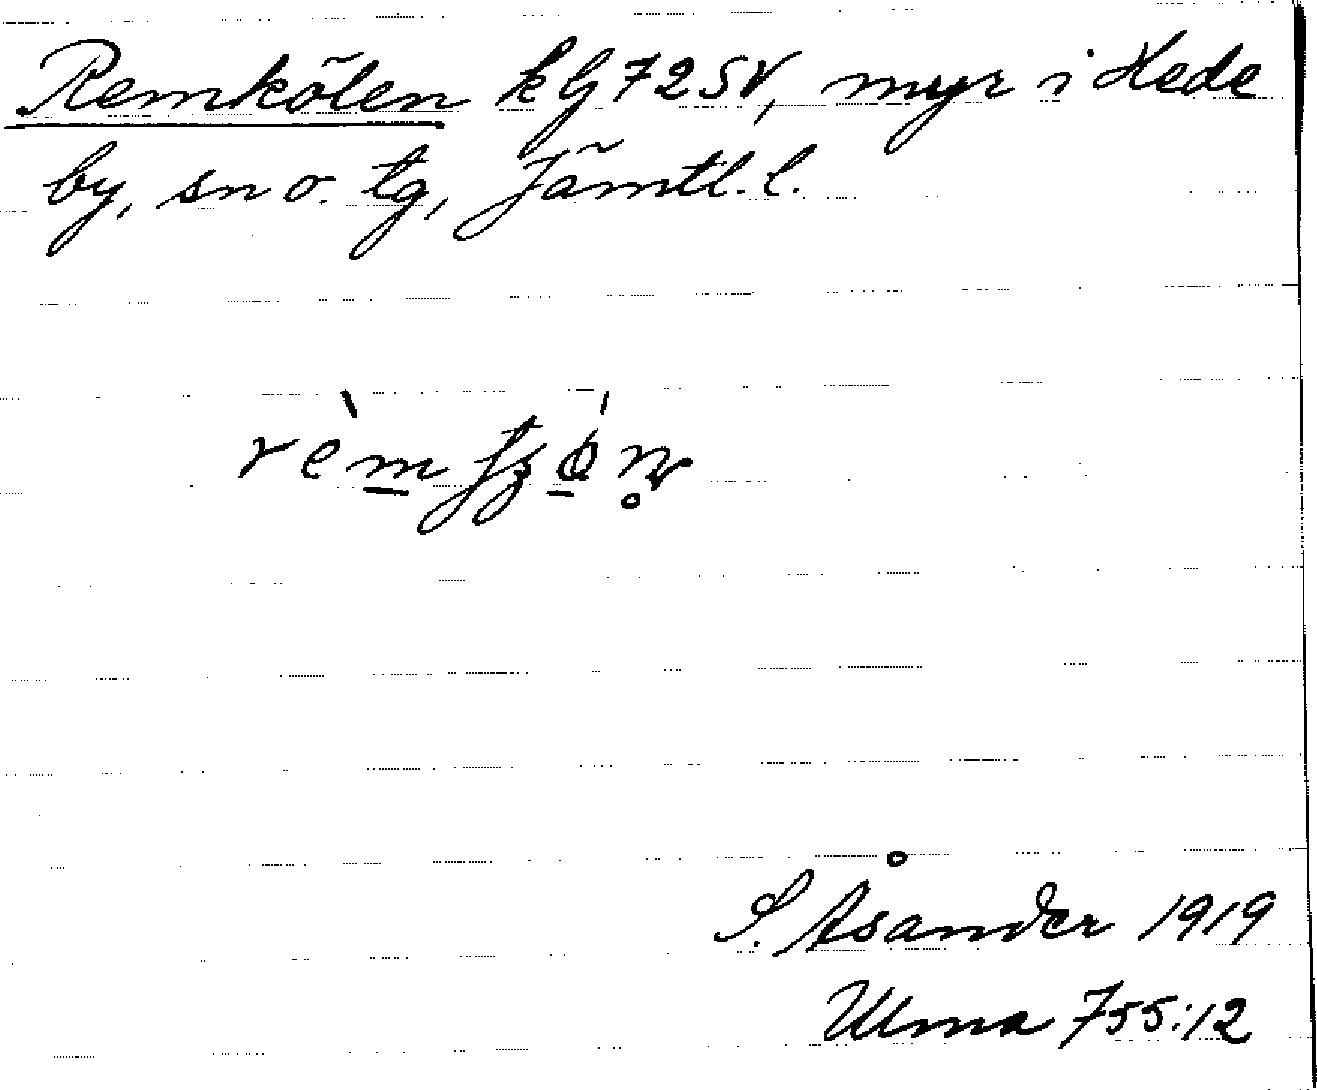 Remkölen k G 72 SV, myr i Hede
by, sn o. tg, Jämtl. l.
S. Åsander 1919
Ulma 755:12